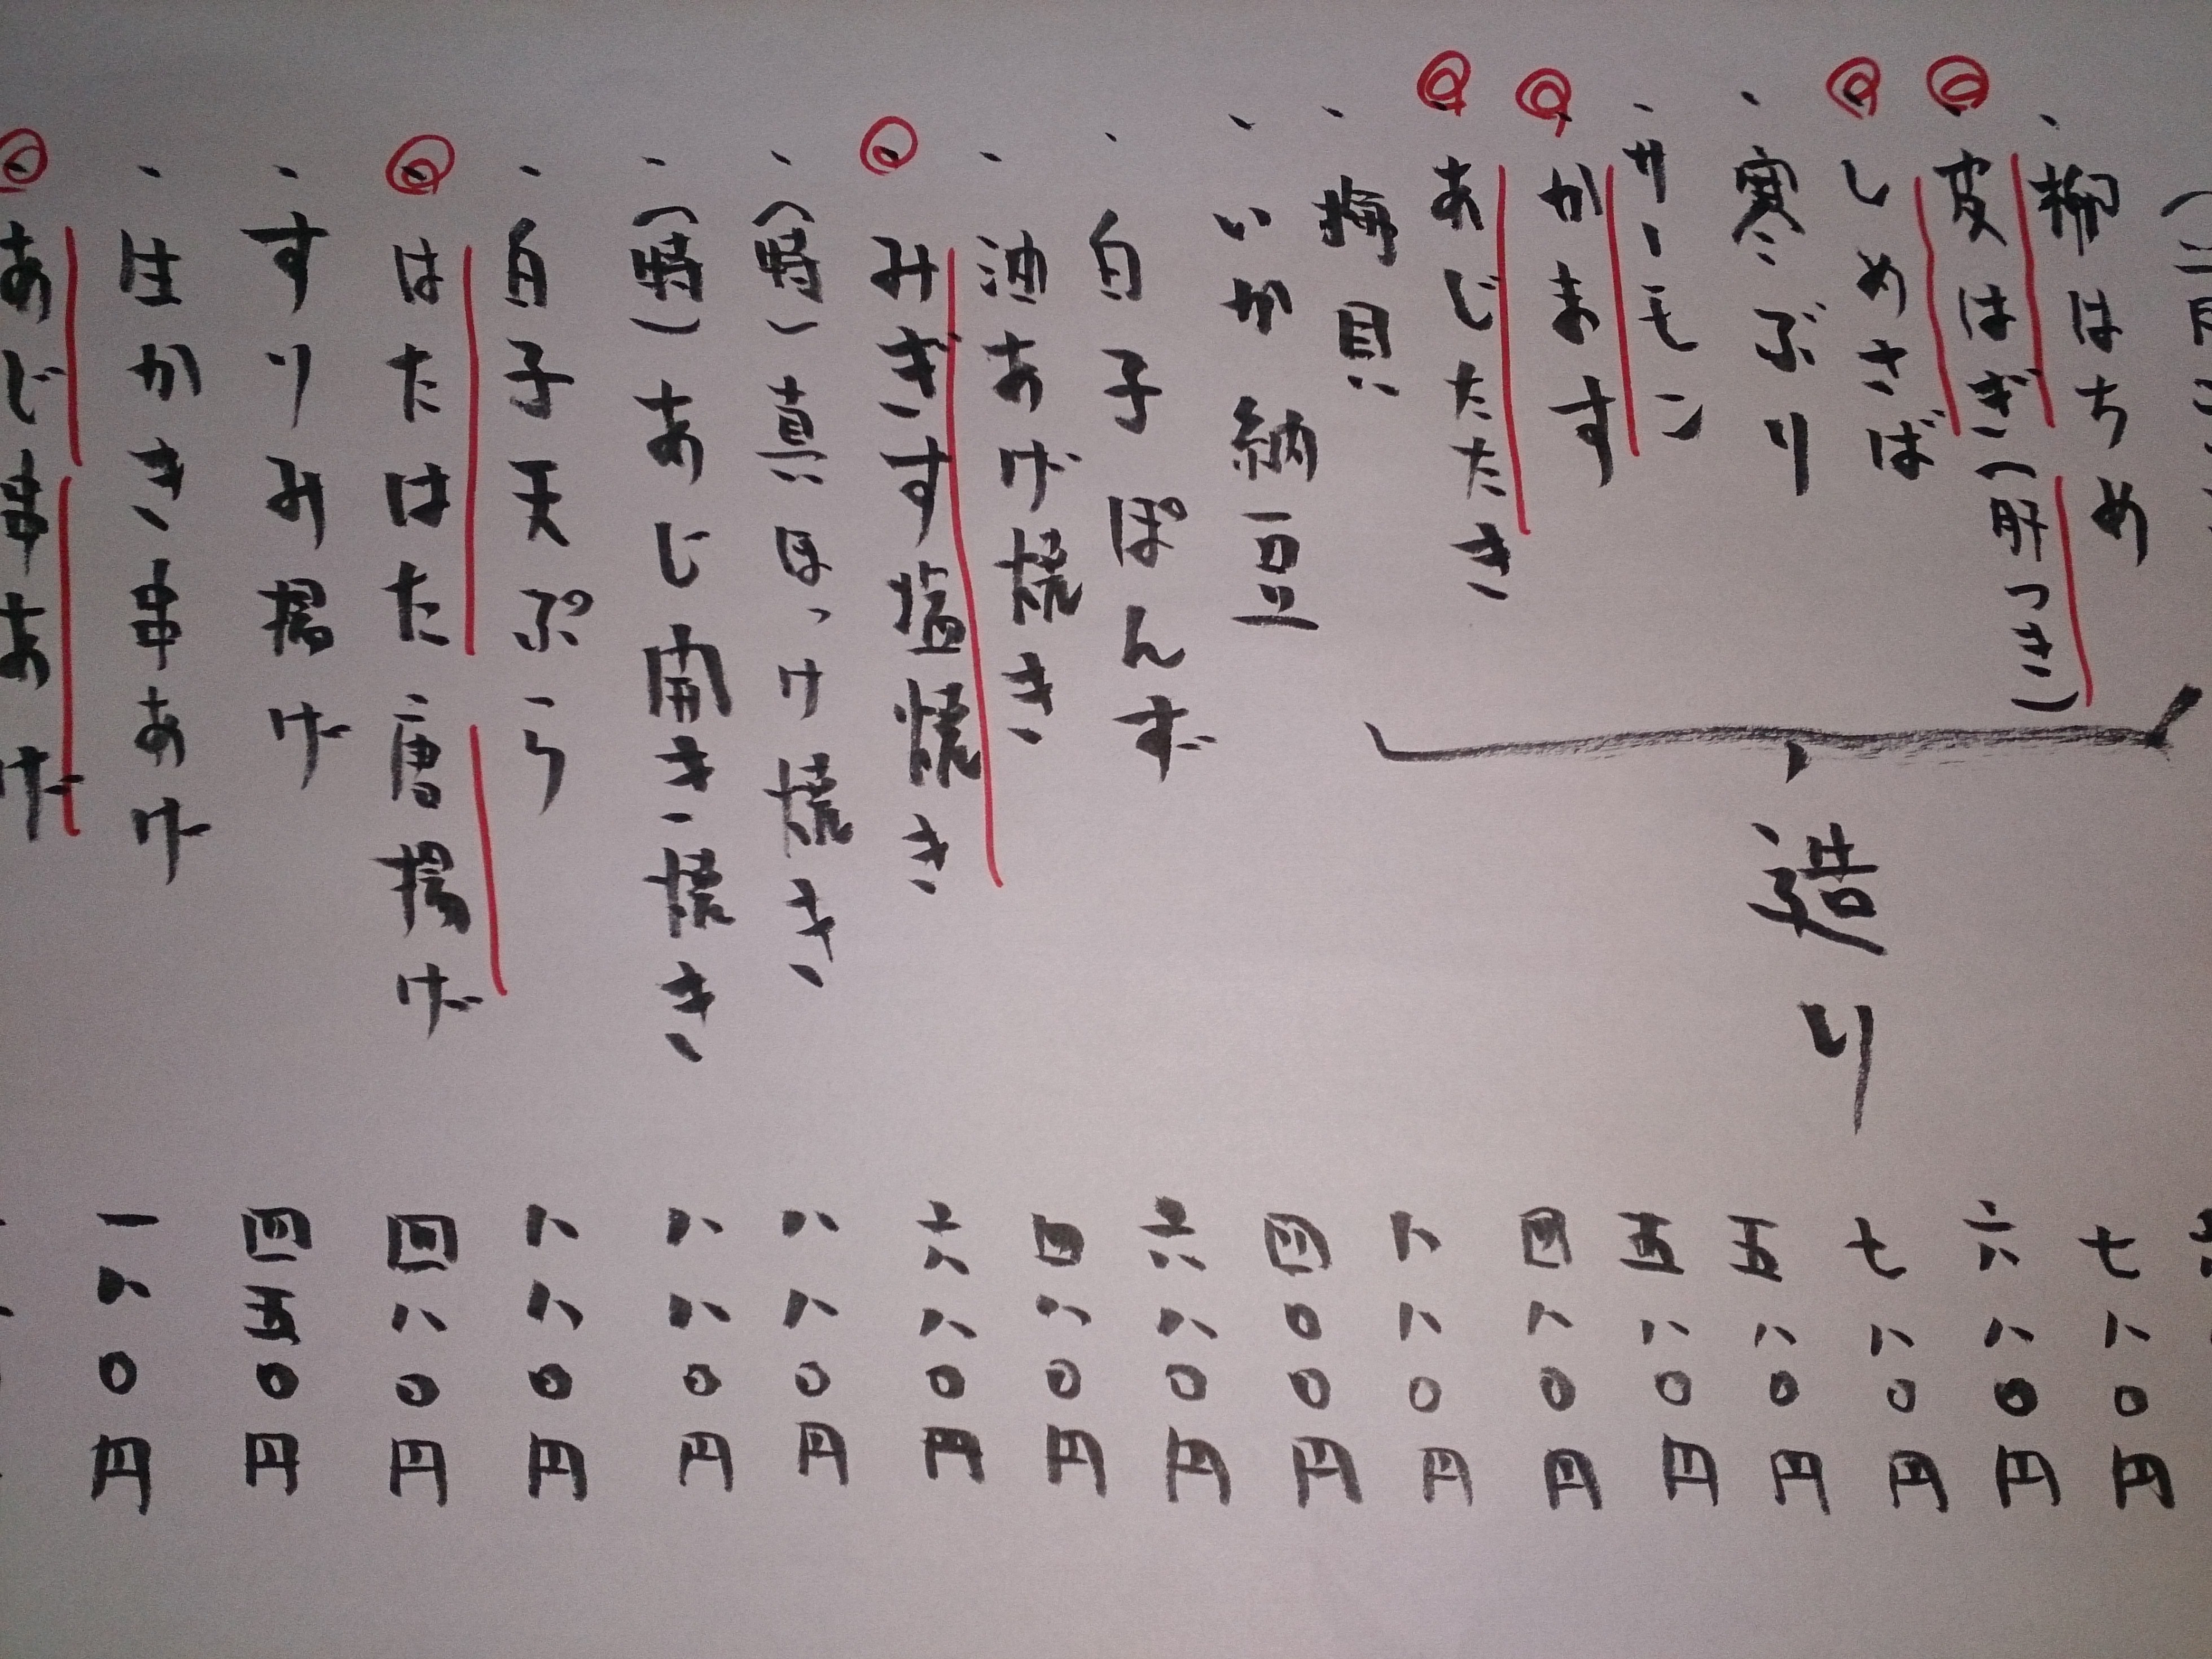 柳はちめ
皮はぎ(肝つき) 七八〇円
しめさば 六八〇円
寒ぶり 七八〇円
サーモン 五八〇円
かます 五八〇円
あじたたき 四八〇円
梅貝 八八〇円
造り
いか納豆 四〇〇円
白子ぽんず 六八〇円
油あげ焼き 四八〇円
みぎす塩焼き 六八〇円
(特)真ほっけ焼き 八八〇円
(特)あじ開き焼き 八八〇円
白子天ぷら 八八〇円
はたはた唐揚げ 四八〇円
すりみ揚げ 四五〇円
生かき串あげ 一八〇円
あじ串あげ